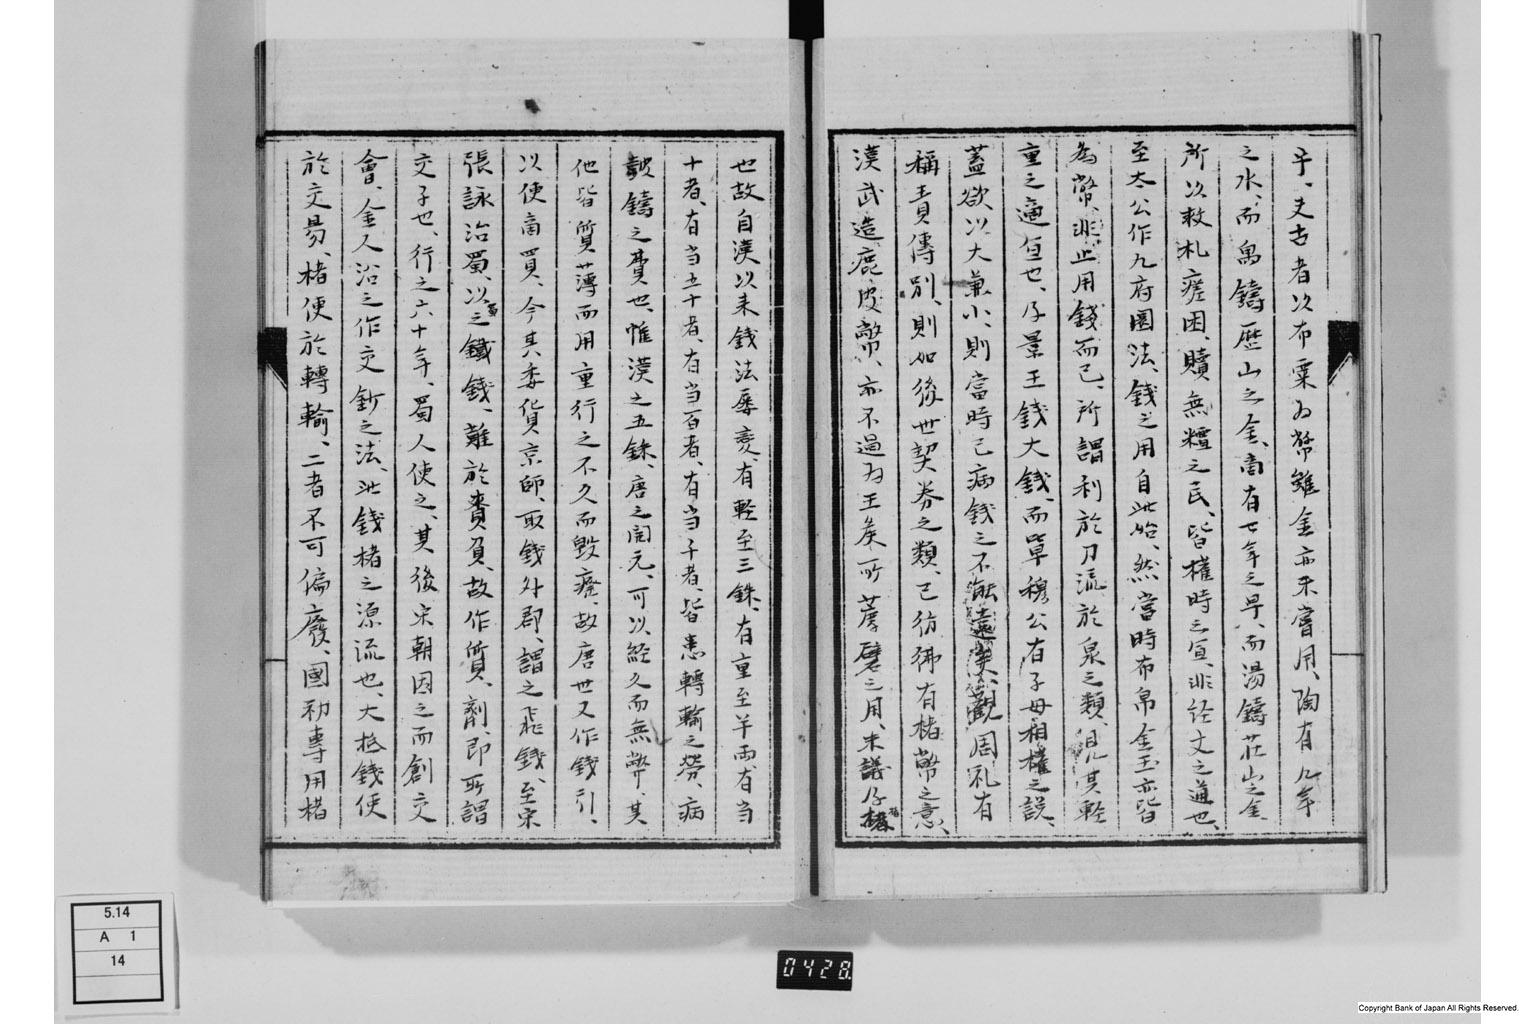 乎、夫古者以布粟為幣雖金亦未嘗用、陶有九年
之水、而禹鑄歷山之金、商有七年之旱、而湯鑄莊山之金
所以救札瘥困、贖無䊤之民、皆権時之宜、非経文之道也、
至太公作九府圜法、錢之用自此始、然當時布帛金玉亦皆
為幣、非止用錢而已、所謂利於刀流於泉之類、見其軽
重之適宜也、及景王錢大錢、而單穆公有子母相権之説、
蓋欲以大兼小、則當時已病錢之不能遠、漢観周礼有
稱責傳別、則如後世契券之類、已彷彿有楮幣之意、
漢武造鹿皮幣、亦不過為王侯所薦璧之用、未議及楮
也故自漢以来錢法屡変、有軽至三銖、有重至半両有当
十者、有当五十者、有当百者、有当千者、皆患轉輸之労、病
鼓鑄之費也、惟漢之五銖、唐之開元、可以経久而無弊、其
他皆質薄而用重行之不久而毀癈、故唐世又作錢引、
以便商買、今其委貨京師、取錢外郡、謂之飛錢、至宋
張詠治蜀、以蜀之鐵錢、難於賚負、故作質、劑、即所謂
交子也、行之六十年、蜀人便之、其後宋朝因之而創交
會、金人沿之作交鈔之法、此錢楮之源流也、大抵錢便
於交易、楮便於轉輸、二者不可偏廢、國初專用楮
5.14
A 1
14
0428
Copyright Bank of Japan All Rights Reserved.